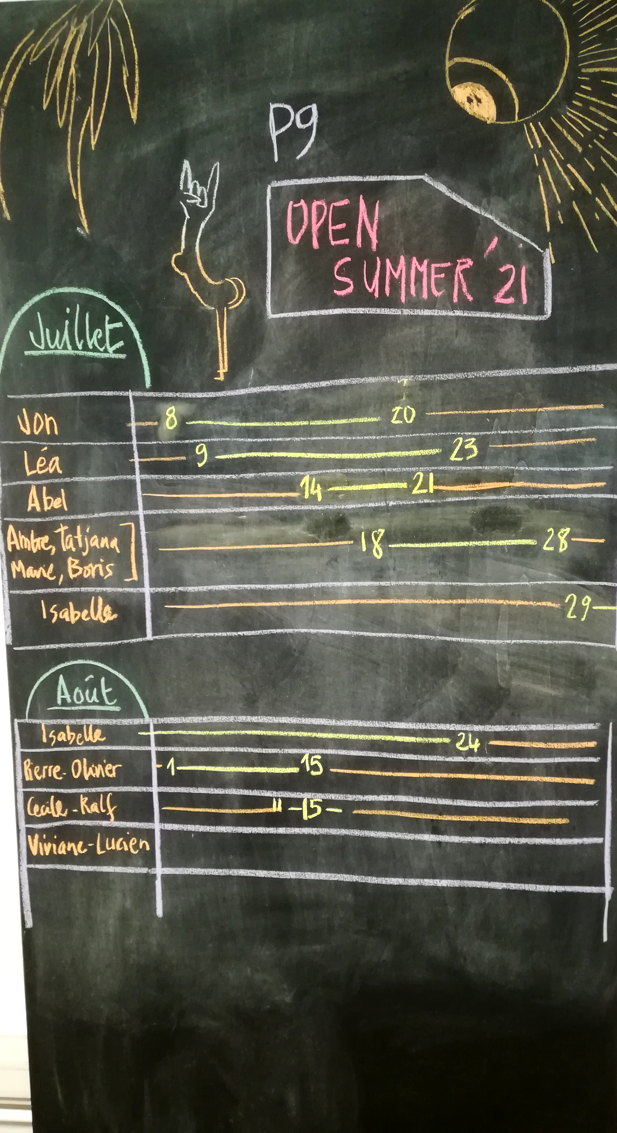 P9
OPEN
SUMMER '21
Juillet
Jon 8 20
Léa 9 23
Abel 14 21
Ambre, Tatjana 18 28
Marie, Boris
Isabelle 29
Août
Isabelle 24
Pierre-Olivier 1 15
Cécile-Ralf 11 15
Viviane-Lucien